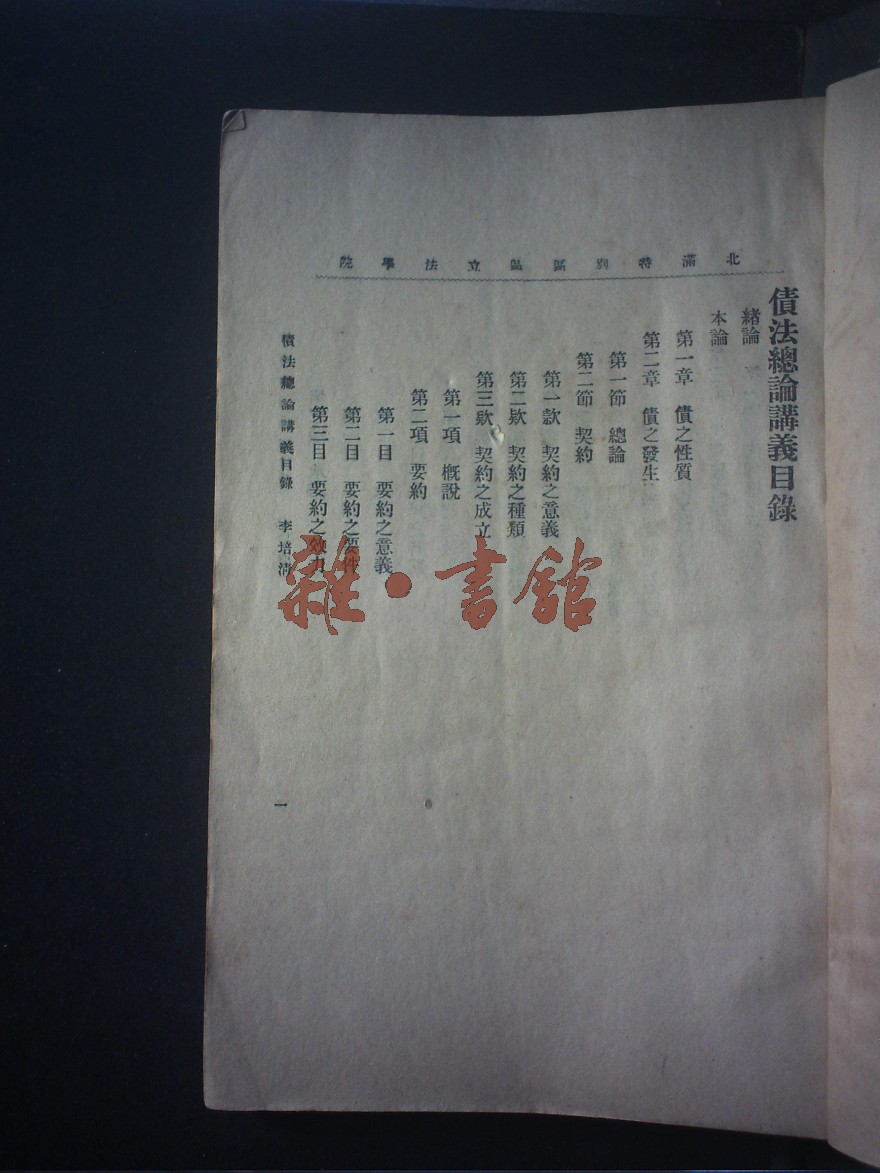 北滿特別區區立法學院
債法總論講義目錄
緒論
本論
第一章 債之性質
第二章 債之發生
第一節 總論
第二節 契約
第一款 契約之意義
第二款 契約之種類
第三款 契約之成立
第一項 概說
第二項 要約
第一目 要約之意義
第二目 要約之要件
第三目 要約之效力
債法總論講義目錄 李培清
一
雜·書館